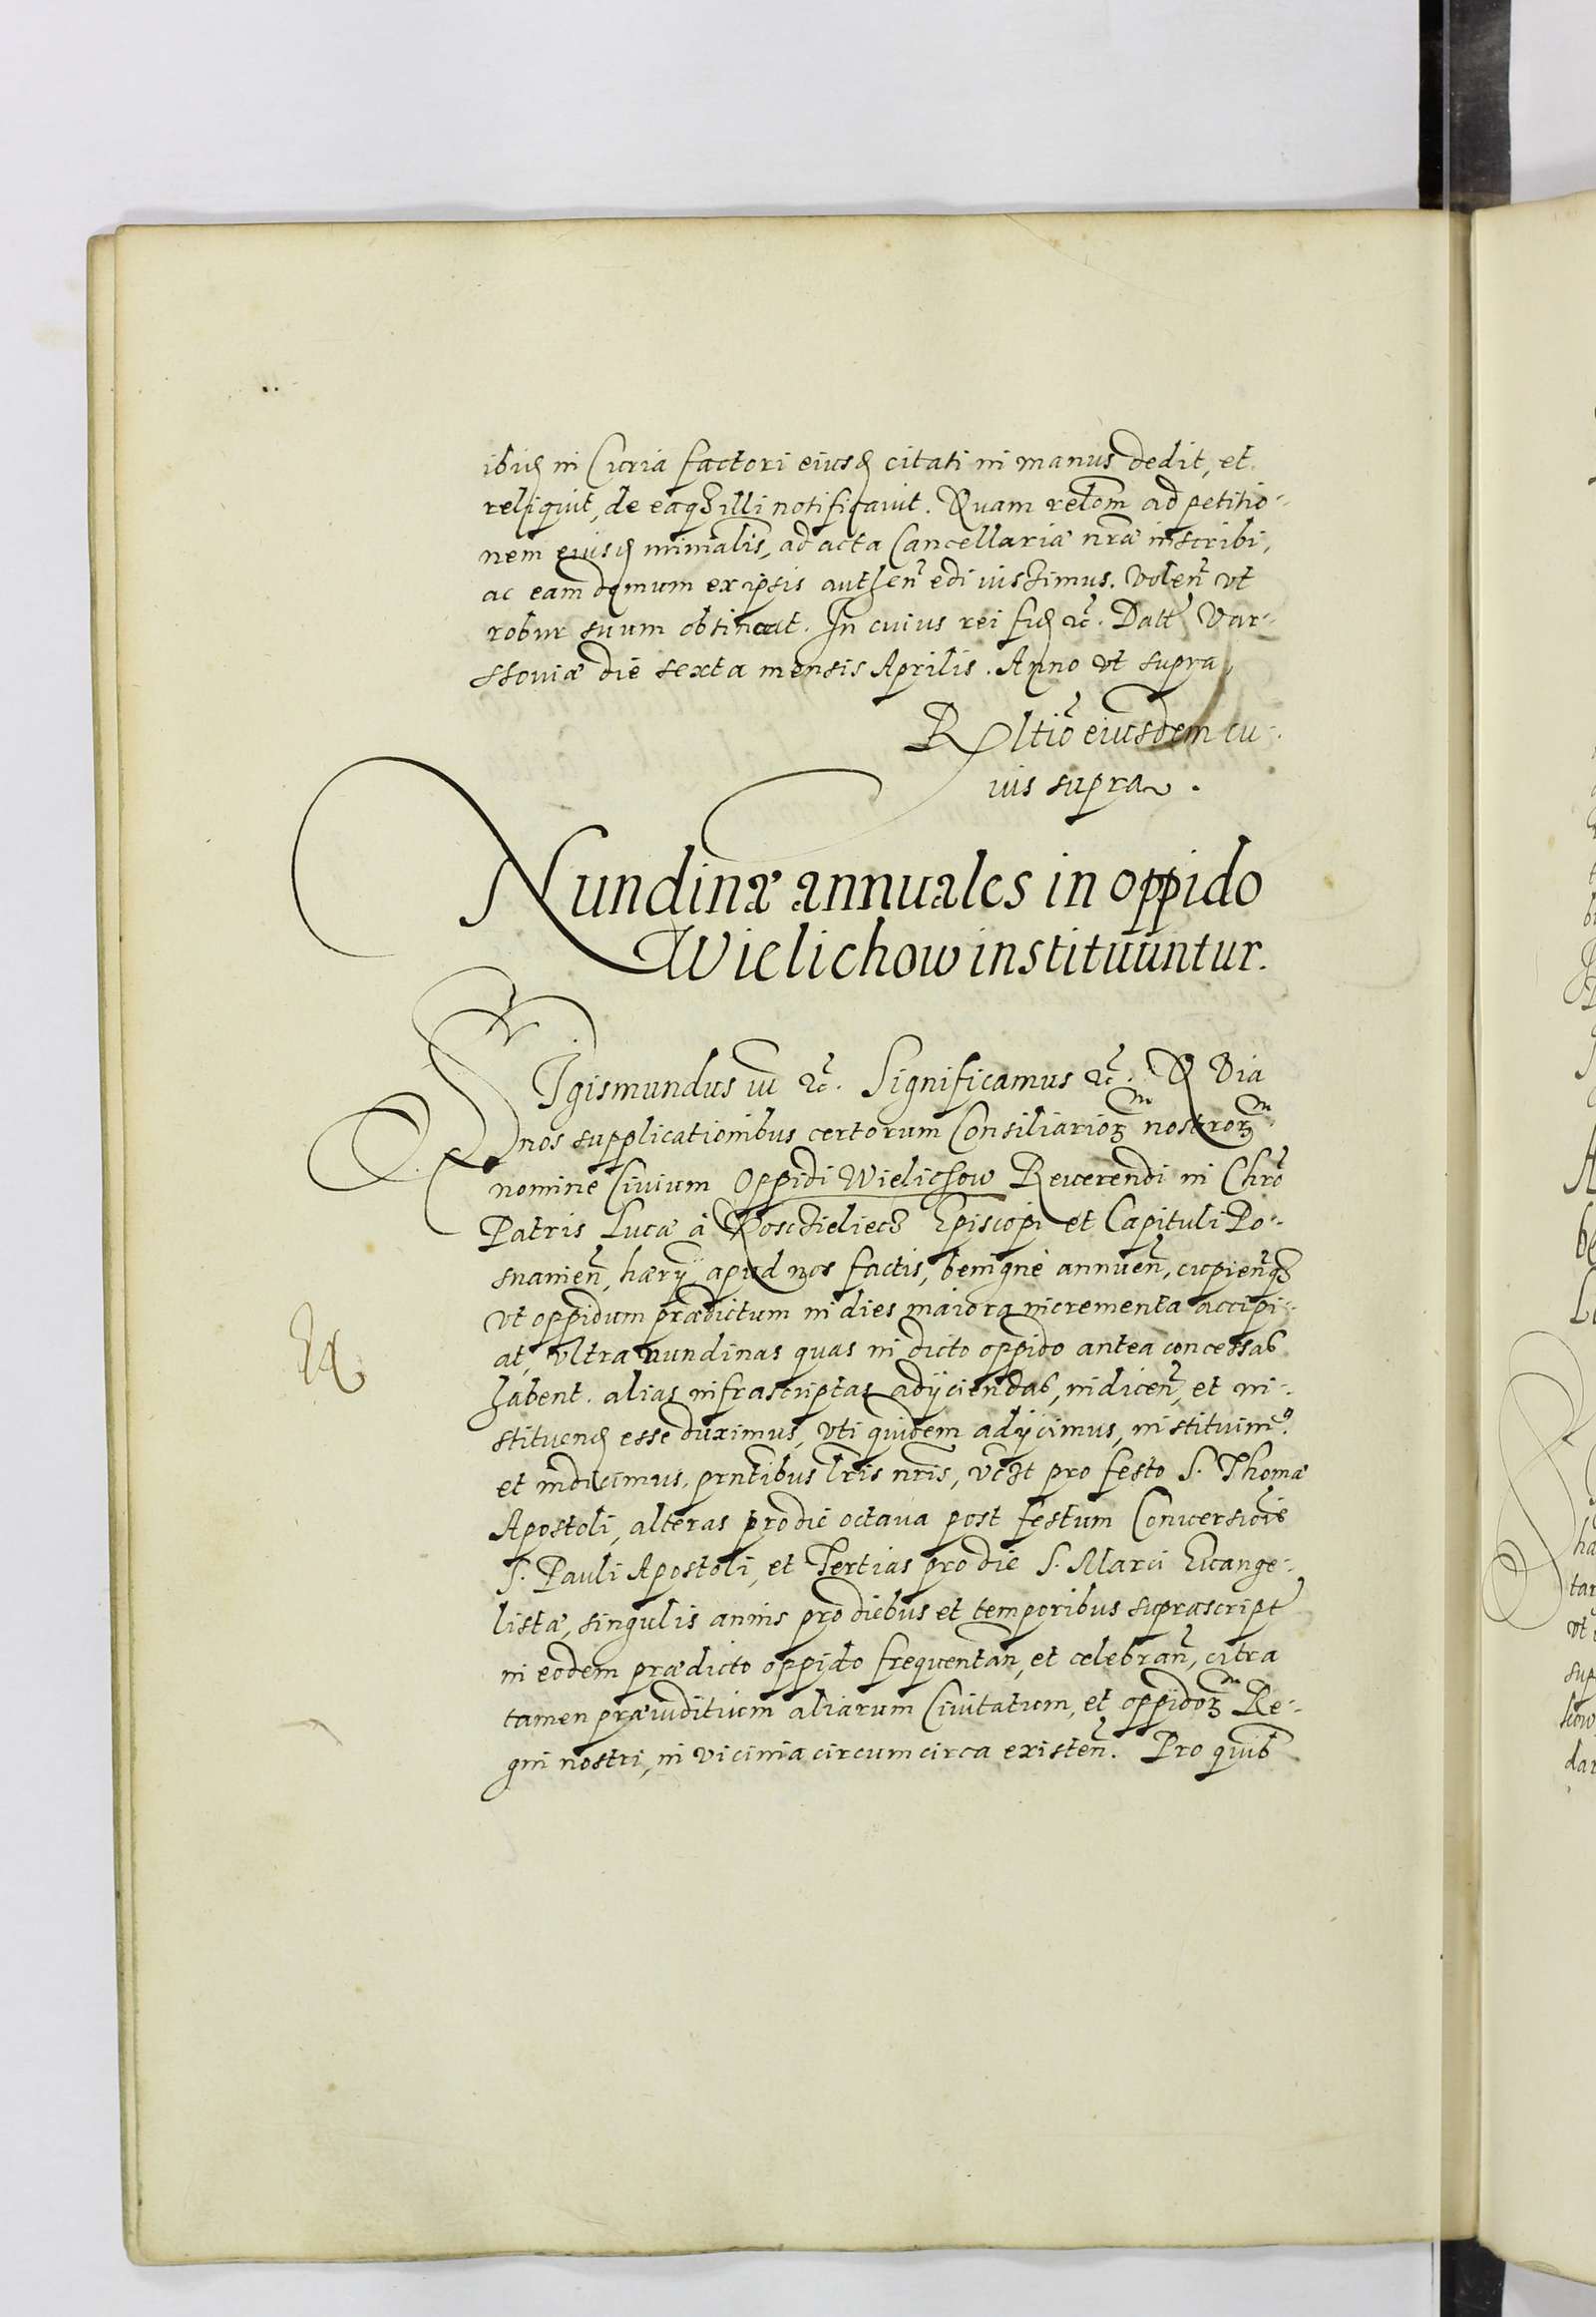 ibid in Curia factori eiusd citati in manus dedit, et
reliquit, de eaq3 illi notificavit. Quam relom ad petitio-
nem eiusd minialis, ad acta Cancellariæ nræ inscribi,
ac eam demum ex ipsis authen edi iussimus. Volen vt
robur suum obtineat. In cuius rei fid etc. Datt Var-
ssoviæ die sexta mensis Aprilis. Anno vt supra,
Rltio eiusdem cu-
ius supra.
Nundinæ annuales in oppido
Wielichow instituuntur.
SIgismundus iii etc. Significamus etc. QVia
nos supplicationibus certorum Consiliarior nostror
nomine Civium Oppidi Wielichow Reverendi in Chro
Patris Lucæ à Koscieliecz Episcopi et Capituli Po-
snanien, hærij apud nos factis, benigne annuen, cupienq3
vt oppidum prædictum in dies maiora incrementa accipi-
at, vltra nundinas quas in dicto oppido antea concessas
habent. alias infrascriptas adijciendas, indicen, et in-
stituend esse duximus, vti quidem adijcimus, instituim9
et indicimus, prntibus lris nris, vc3t pro festo S. Thomæ
Apostoli, alteras pro die octaua post festum Conversiois
S. Pauli Apostoli, et Tertias pro die S. Marci Evange-
listæ, singulis annis pro diebus et temporibus suprascript
in eodem prædicto oppido frequentan, et celebran, citra
tamen præiuditium aliarum Civitatum, et oppidor Re-
gni nostri, in vicinia circumcirca existen. Pro quib